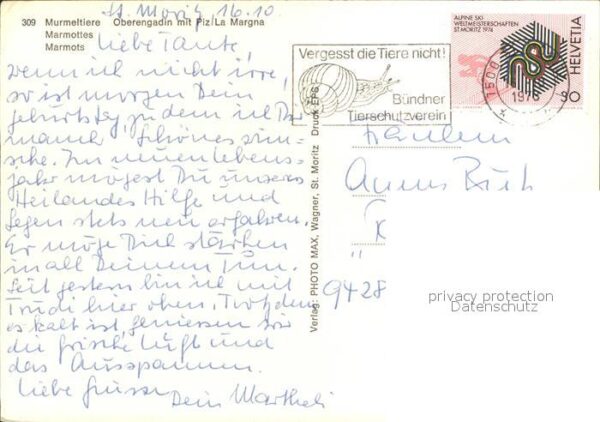 St. Moritz, 16.10
309 Murmeltiere Oberengadin mit Piz La Margna
Marmottes
Marmots
Liebe Tante,
wenn ich nicht irre,
so ist morgen Dein
Geburtstag zu dem ich Dir
manch' Schönes wün-
sche. Im neuen Lebens-
jahr mögest Du unseres
Heilandes Hilfe und
Segen stets neu erfahren.
Er möge Dich stärken
in all Deinem Tun.
Seit gestern bin ich mit
Trudi hier oben, Trotzdem
es kalt ist, geniessen wir
die frische Luft und
das Ausspannen.
Liebe Grüsse
Dein Martheli
Verlag: PHOTO MAX, Wagner, St. Moritz Druck EPS
Vergesst die Tiere nicht!
Bündner
Tierschutzverein
1500
1976
ALPINE SKI
WELTMEISTERSCHAFTEN
ST. MORITZ 1974
HELVETIA
30
Fräulein
9428
privacy protection
Datenschutz